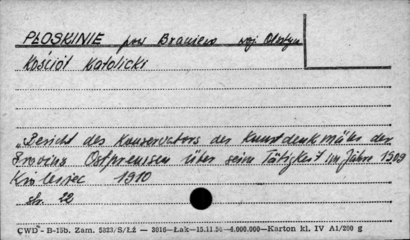 PŁOSKINIE pow Braniewo woj Olsztyn
Kościół Katolicki
"Bericht des Konservators der Kunstdenkmäler der
Provinz Ostpreussen über seine Tätigkeit im Jahre 1909
1910
str. 22
CWD - B-15b. Zam. 5823/S/Łż — 3016—Łak—15.11.56—4.000.000—Karton kl. IV A1/200 g